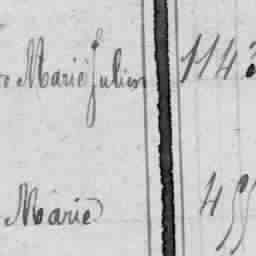 Marie Julien 1143
Marie 455